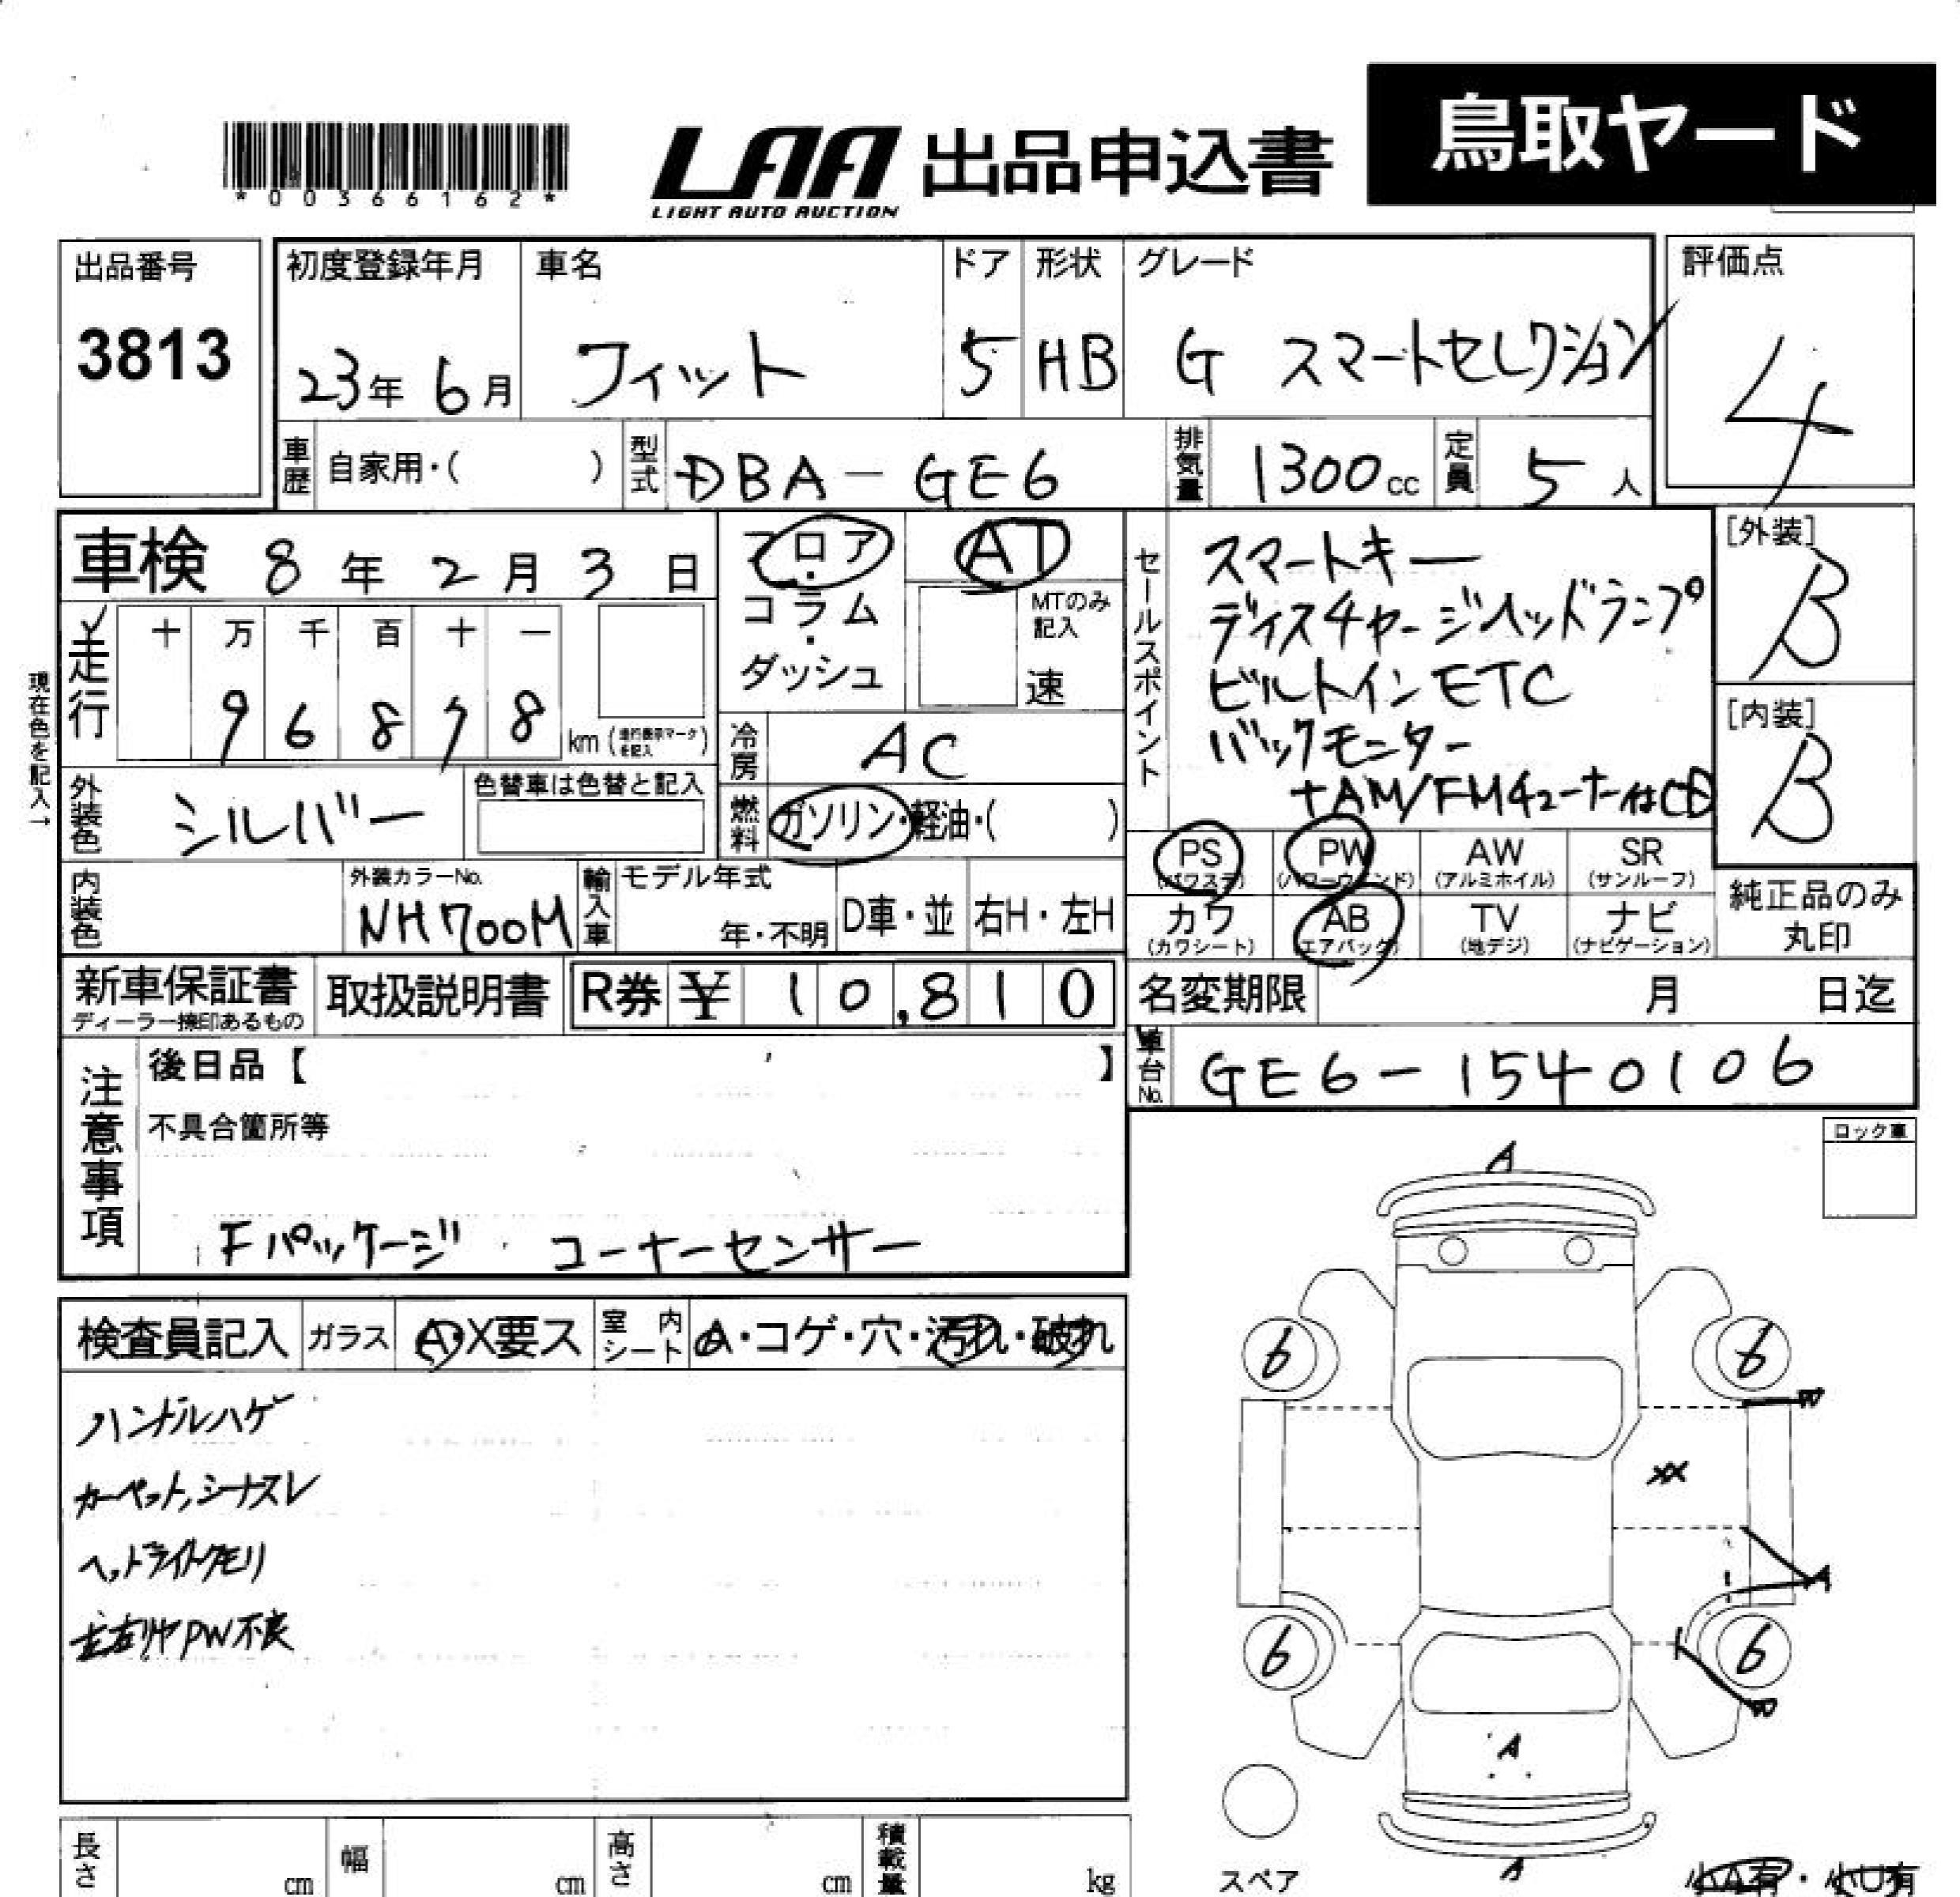 鳥取ヤード
*00366162*
LAA 出品申込書
LIGHT AUTO AUCTION
出品番号 初度登録年月 車名 ドア 形状 グレード 評価点
3813 23年 6月 フィット 5 HB G スマートセレクション 4
車歴 自家用・( ) 型式 DBA-GE6 排気量 1300cc 定員 5人
車検 8年 2月 3日 フロア・コラム・ダッシュ AT
MTのみ記入 速
セールスポイント スマートキー
ディスチャージヘッドランプ
ビルトインETC
バックモニター
+AM/FMチューナー付CD
[外装] B
[内装] B
現在色を記入→
走行 十 万 千 百 十 一
9 6 8 7 8 km (走行表示マークを記入)
冷房 AC
外装色 シルバー 色替車は色替と記入
燃料 ガソリン・軽油・( )
PS (パワステ) PW (パワーウィンド) AW (アルミホイル) SR (サンルーフ)
カワ (カワシート) AB (エアバック) TV (地デジ) ナビ (ナビゲーション)
純正品のみ丸印
内装色 外装カラーNo. NH700M 輸入車 モデル年式 年・不明 D車・並 右H・左H
新車保証書 ディーラー捺印あるもの 取扱説明書 R券 ¥ 10,810
名変期限 月 日迄
車台No. GE6-1540106
注意事項 後日品【 】
不具合箇所等
Fパッケージ コーナーセンサー
ロック車
検査員記入 ガラス A・X要ス 室内シート A・コゲ・穴・汚れ・破れ
ハンドルハゲ
カーペット,シートスレ
ヘッドライトクモリ
左右リヤPW不良
A
6 6
W
XX
A
6 6
A
A
スペア
小A有・小U有
長さ cm 幅 cm 高さ cm 積載量 kg